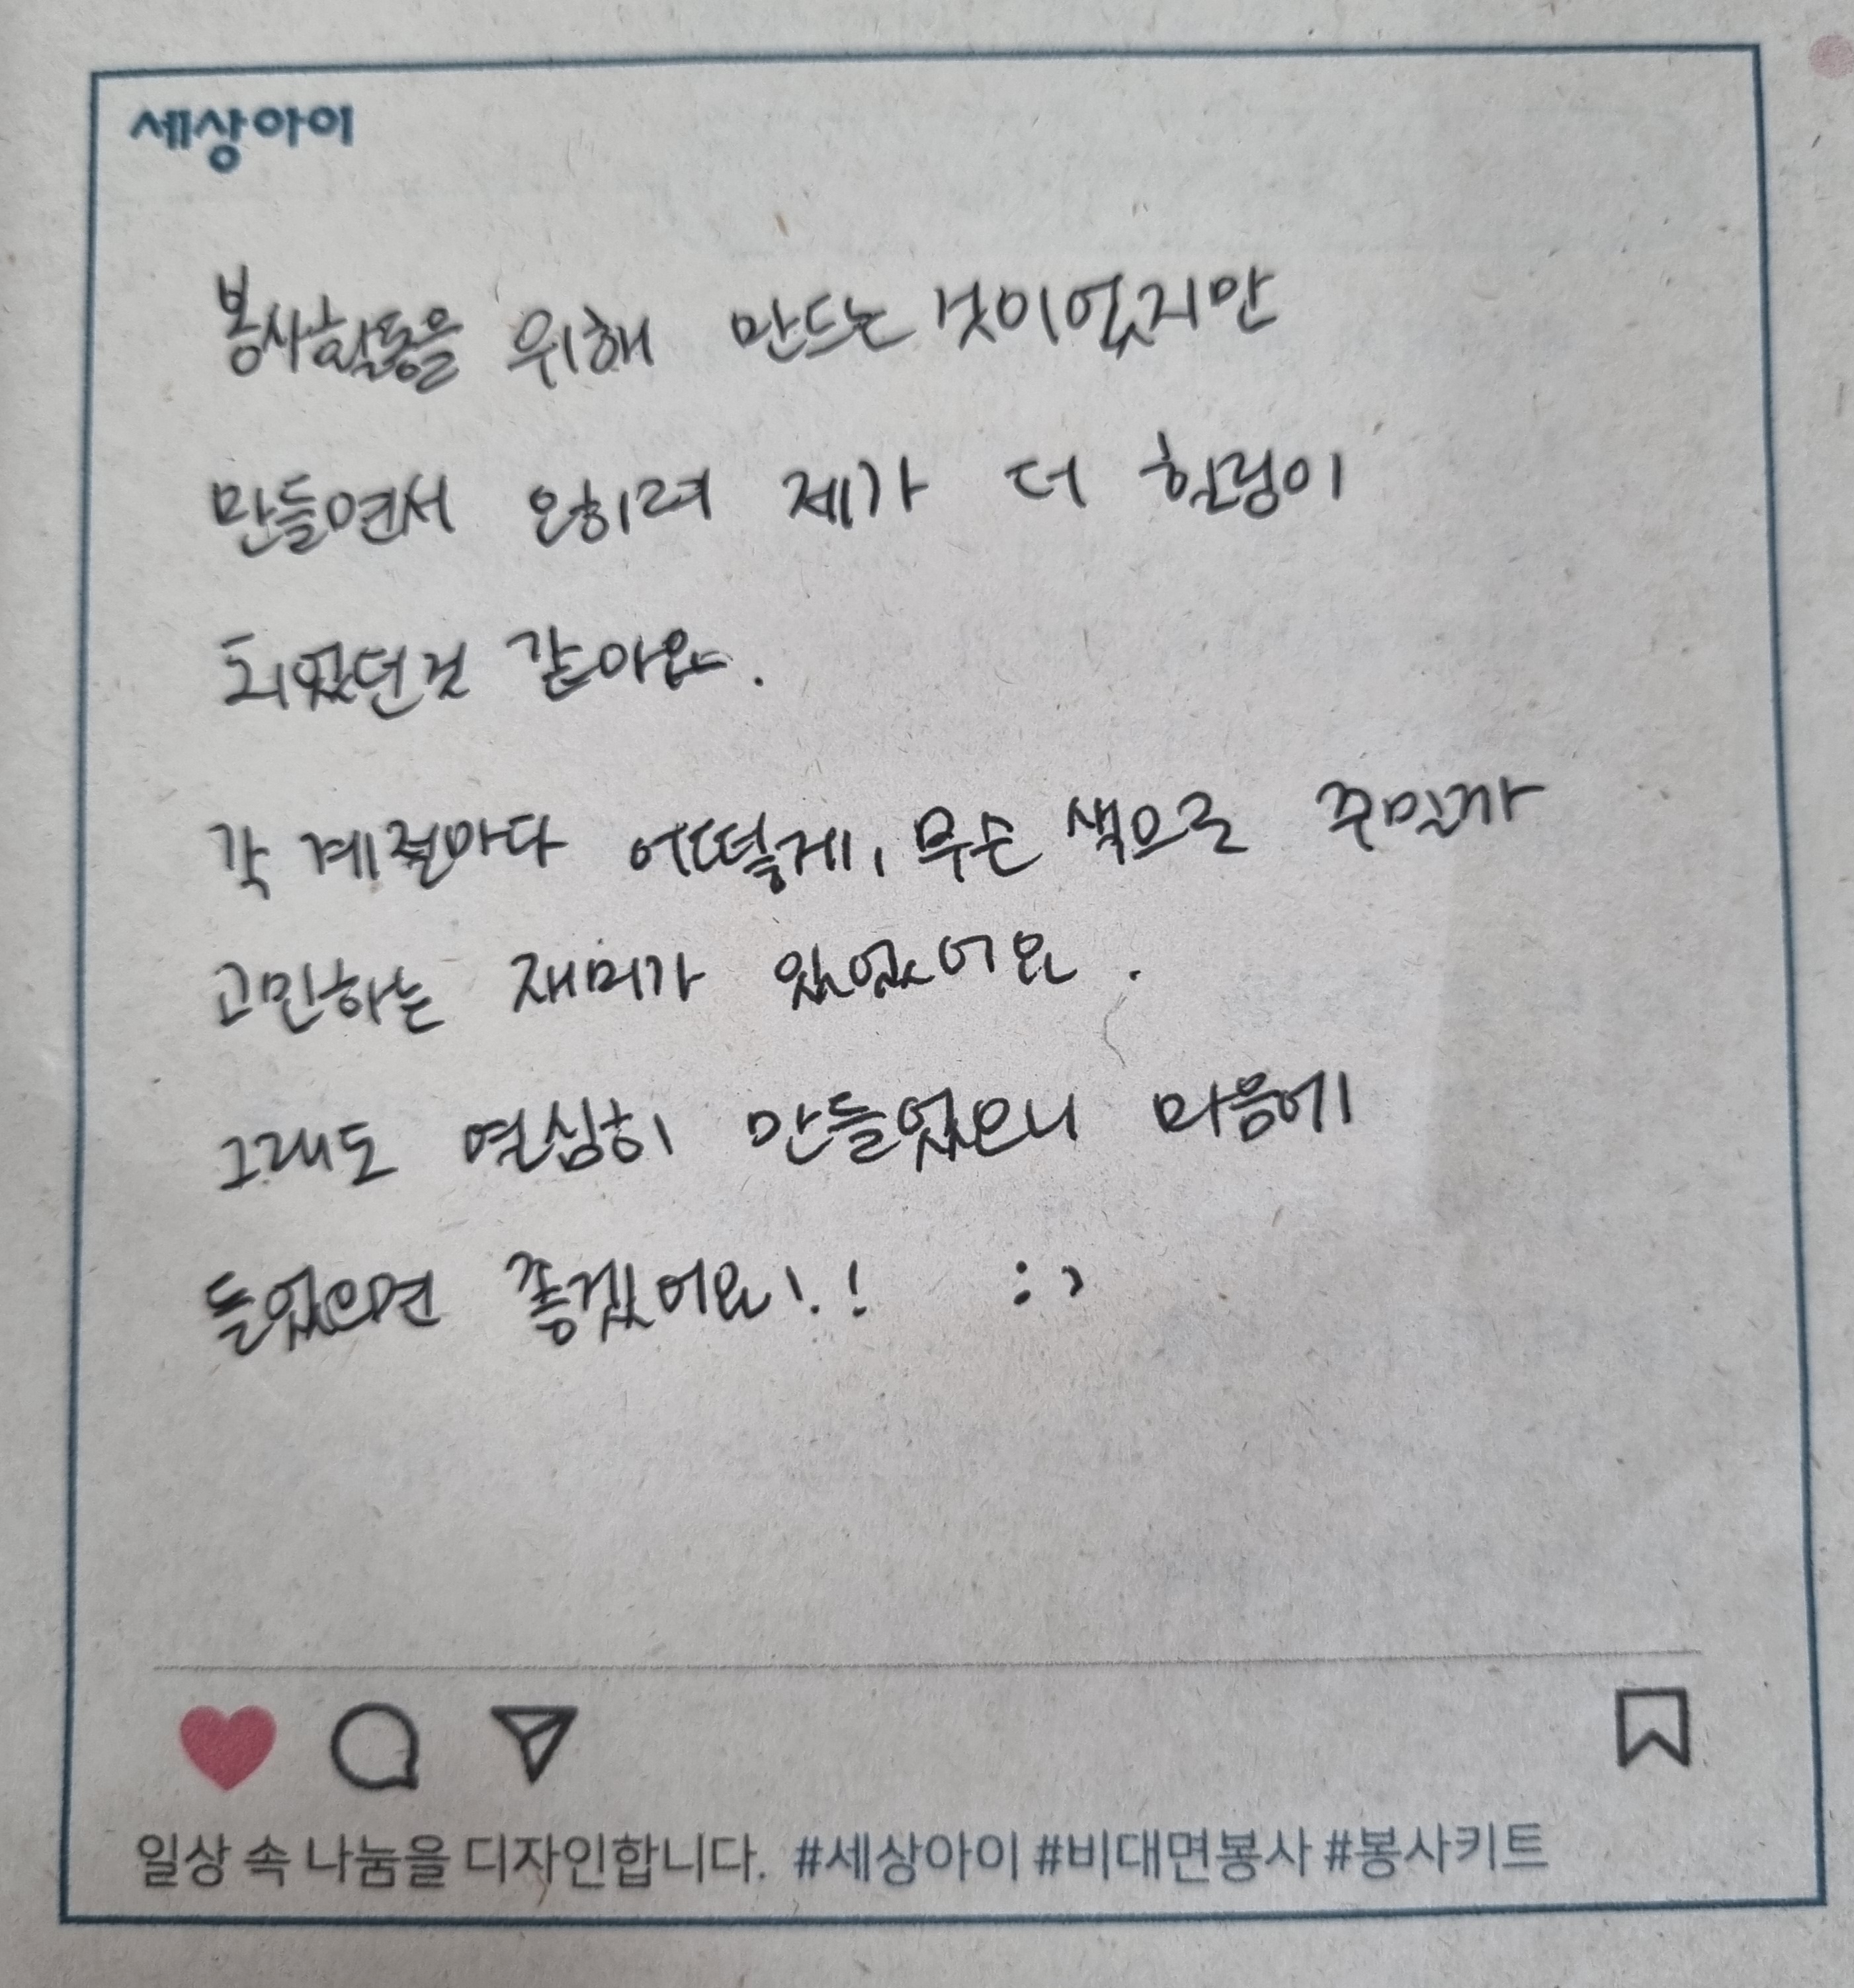 세상아이
봉사활동을 위해 만드는 것이었지만
만들면서 오히려 제가 더 힐링이
되었던것 같아요.
각 계절마다 어떻게, 무슨 색으로 꾸밀까
고민하는 재미가 있었어요.
그래도 열심히 만들었으니 마음에
들었으면 좋겠어요!! :)
일상 속 나눔을 디자인합니다. #세상아이 #비대면봉사 #봉사키트